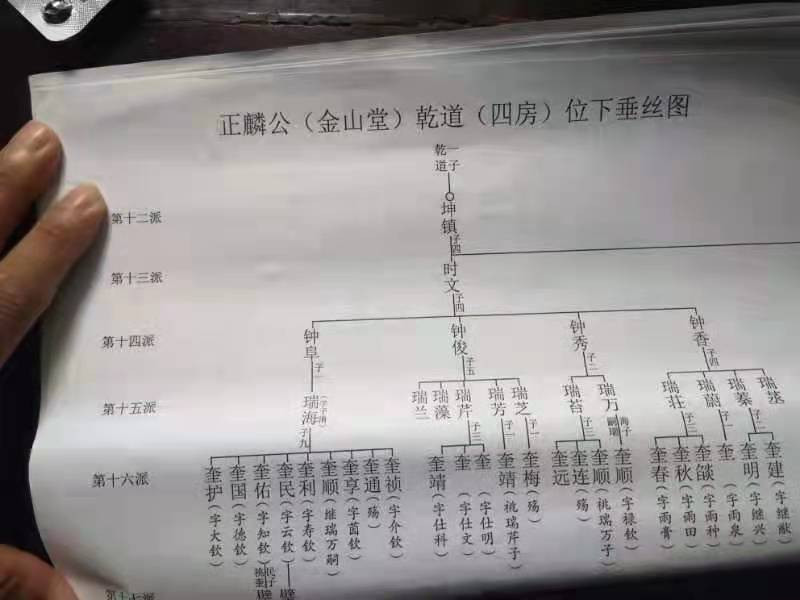 正麟公（金山堂）乾道（四房）位下垂丝图
乾道 一子
第十二派
坤镇
子四
第十三派
时文
子四
第十四派
钟阜 钟俊 钟秀 钟香
子一 子五 子二 子四
第十五派
瑞海 瑞兰 瑞藻 瑞芹 瑞芳 瑞芝 瑞苔 瑞万 瑞庄 瑞蔚 瑞蓁
子九 子三 子一 子一 子三 嗣子 子三 子一 子二
第十六派
奎护（字大钦）
奎国（字德钦）
奎佑（字知钦）
奎民（字云钦）
奎利（字寿钦）
奎顺（继瑞万嗣）
奎享（字茵钦）
奎通（殇）
奎祯（字介钦）
奎靖（字仕科）
奎（字仕文）
奎（字仕明）
奎靖（祧瑞芹子）
奎梅（殇）
奎远
奎连（殇）
奎顺（祧瑞万子）
奎顺（字禄钦）
奎春（字雨膏）
奎秋（字雨田）
奎燄（字雨种）
奎（字雨泉）
奎明（字继兴）
奎建（字继猷）
第十七派